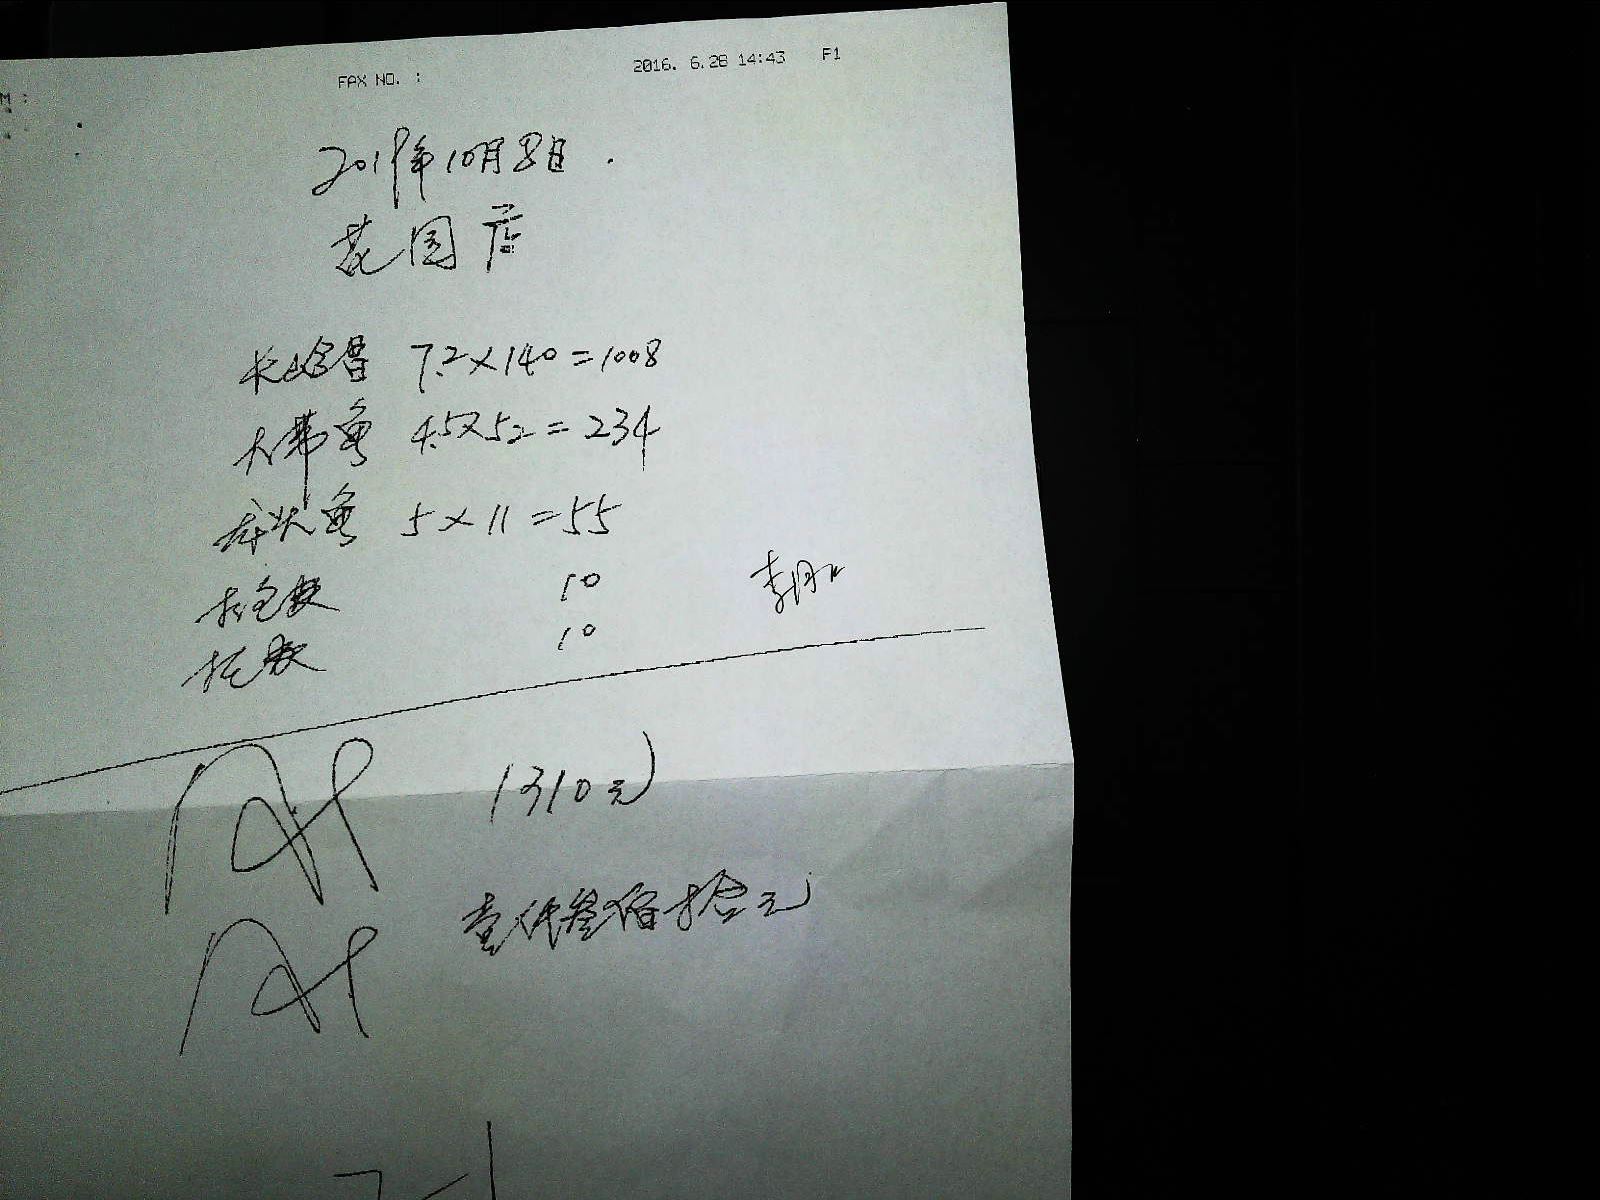 M :
FAX NO. :
2016. 6.28 14:43
F1
2019年10月8日.
花园店
7.2×140=1008
大带鱼 4.5×52=234
头鱼 5×11=55
10
10
1310元
壹仟叁佰拾元